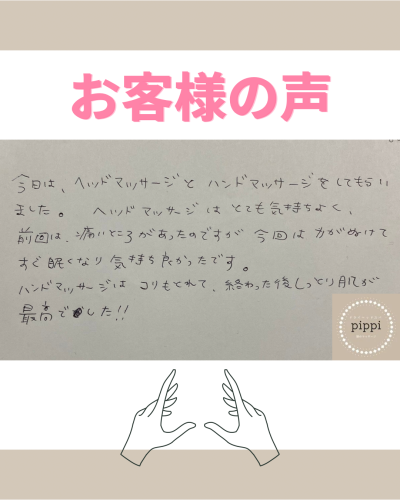 お客様の声
今日は、ヘッドマッサージと ハンドマッサージをしてもらい
ました。 ヘッドマッサージは とても気持ちよく、
前回は、痛いところがあったのですが 今回は 力がぬけて
すぐ眠くなり 気持ち良かったです。
ハンドマッサージは コリもとれて、終わった後しっとり肌が
最高でした!!
pippi